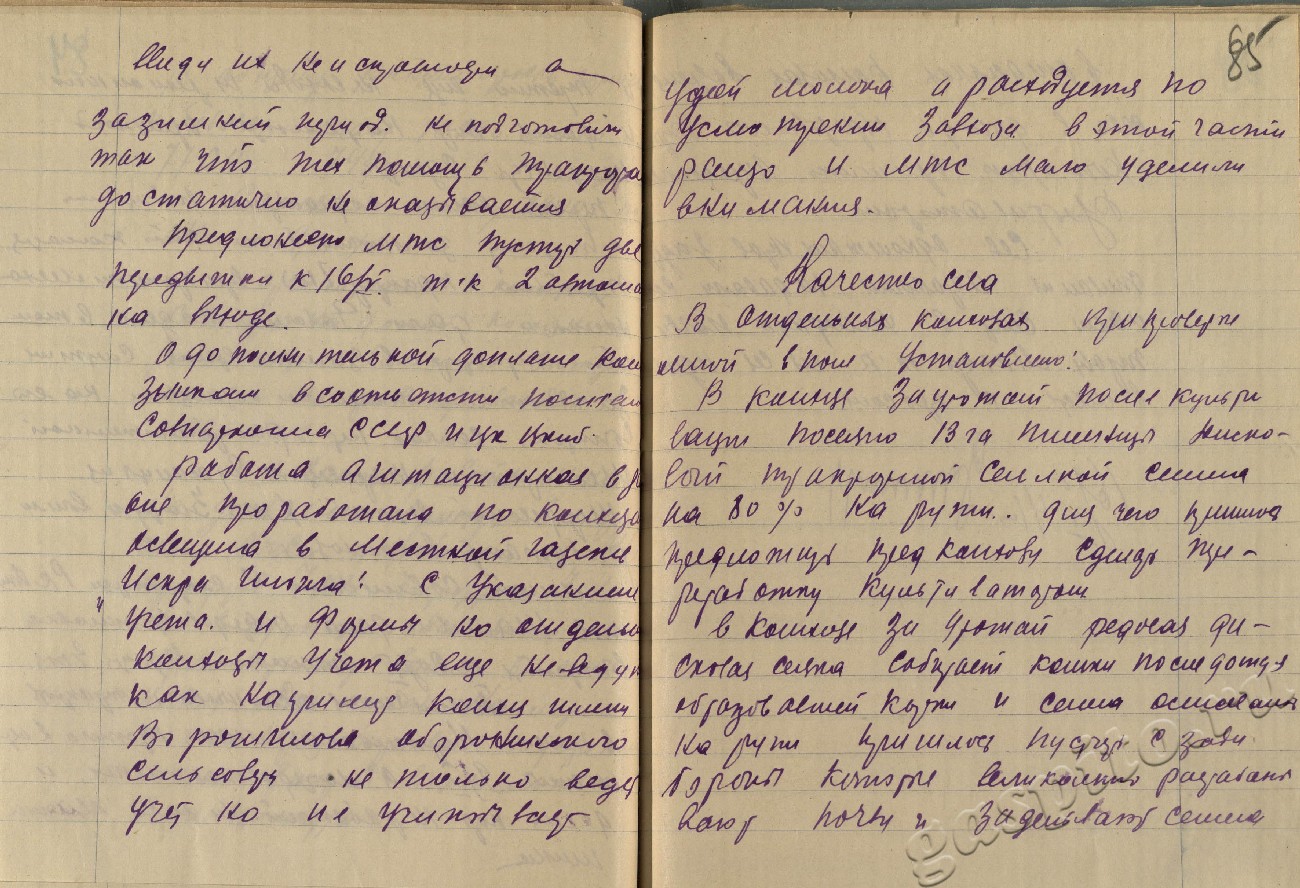 ввиду их неисправности а
за зимний период. не подготовили
так что тех помощь трактора
достаточно не оказывается
Предложено мтс пустить две
передвижки к 16/IV. т-к 2 автома
на выходе.
О дополнительной доплате кол
зникам в соответствии постан
Совнаркома СССР и цк вкпб.
работа агитационная в ра
оне проработана по колхоза
освещена в местной газете
Искра Ильича! с указанием
учета. и формы но отдельн
колхозы учета еще не ведут
как например колхоз имени
Ворошилова
сельсовета не только ведет
учет но и не учитывает
85
удой молока а расходуется по
усмотрению Завхоза в этой части
райзо и мтс мало уделили
внимания.
Качество сева
В отдельных колхозах при проверке
мной в поле установлено!
В колхозе За урожай после культи
вации посеяно 13 га пшеницы диско-
вой тракторной сеялкой семена
на 80% на. для чего пришлось
предложить пред колхозу сделать пере-
работку культиватором
в колхозе За урожай рядовая ди-
сковая сеялка собирает комки после дождя
образовавшей корки и семена оставлены
на пришлось пустить с зади
бороны которые великолепно разрабаты
вают почву и задействают семена
gaspiro.ru